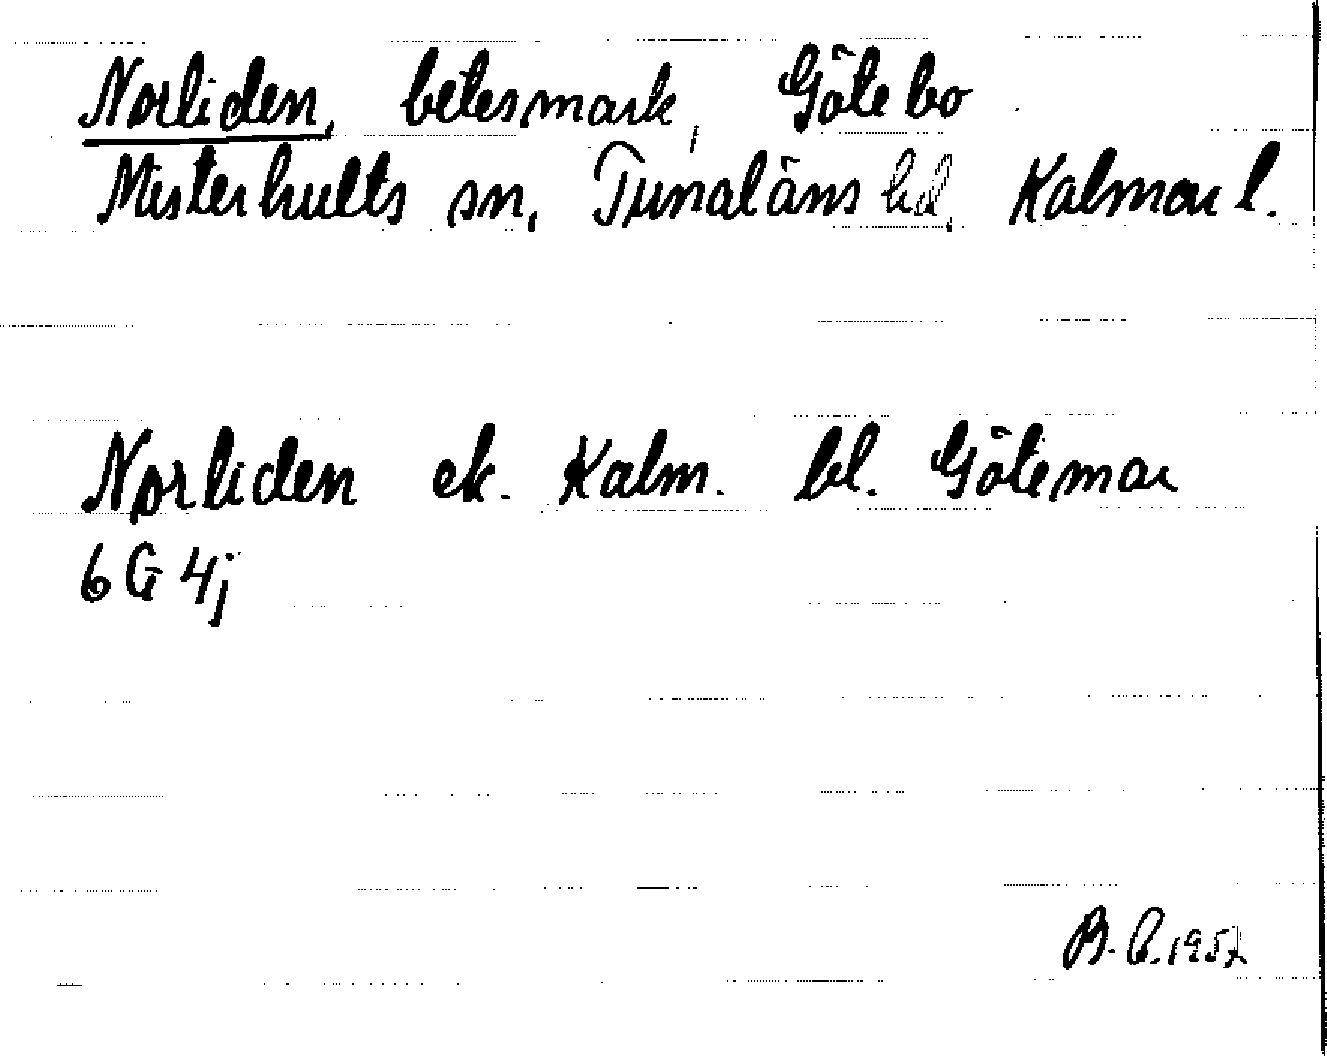 Norliden, betesmark, Götebo
Misterhults sn, Tunaläns hd, Kalmar l.
Norliden ek. Kalm. bl. Götemar
6 G 4j
B. P. 1952